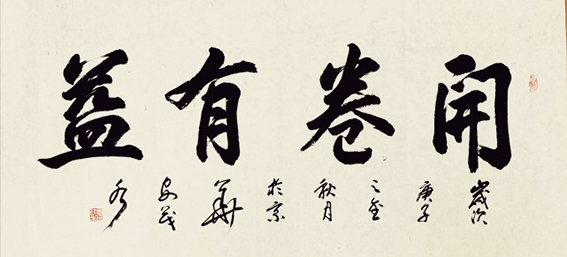 開卷有益
歲次庚子之金秋月於京華